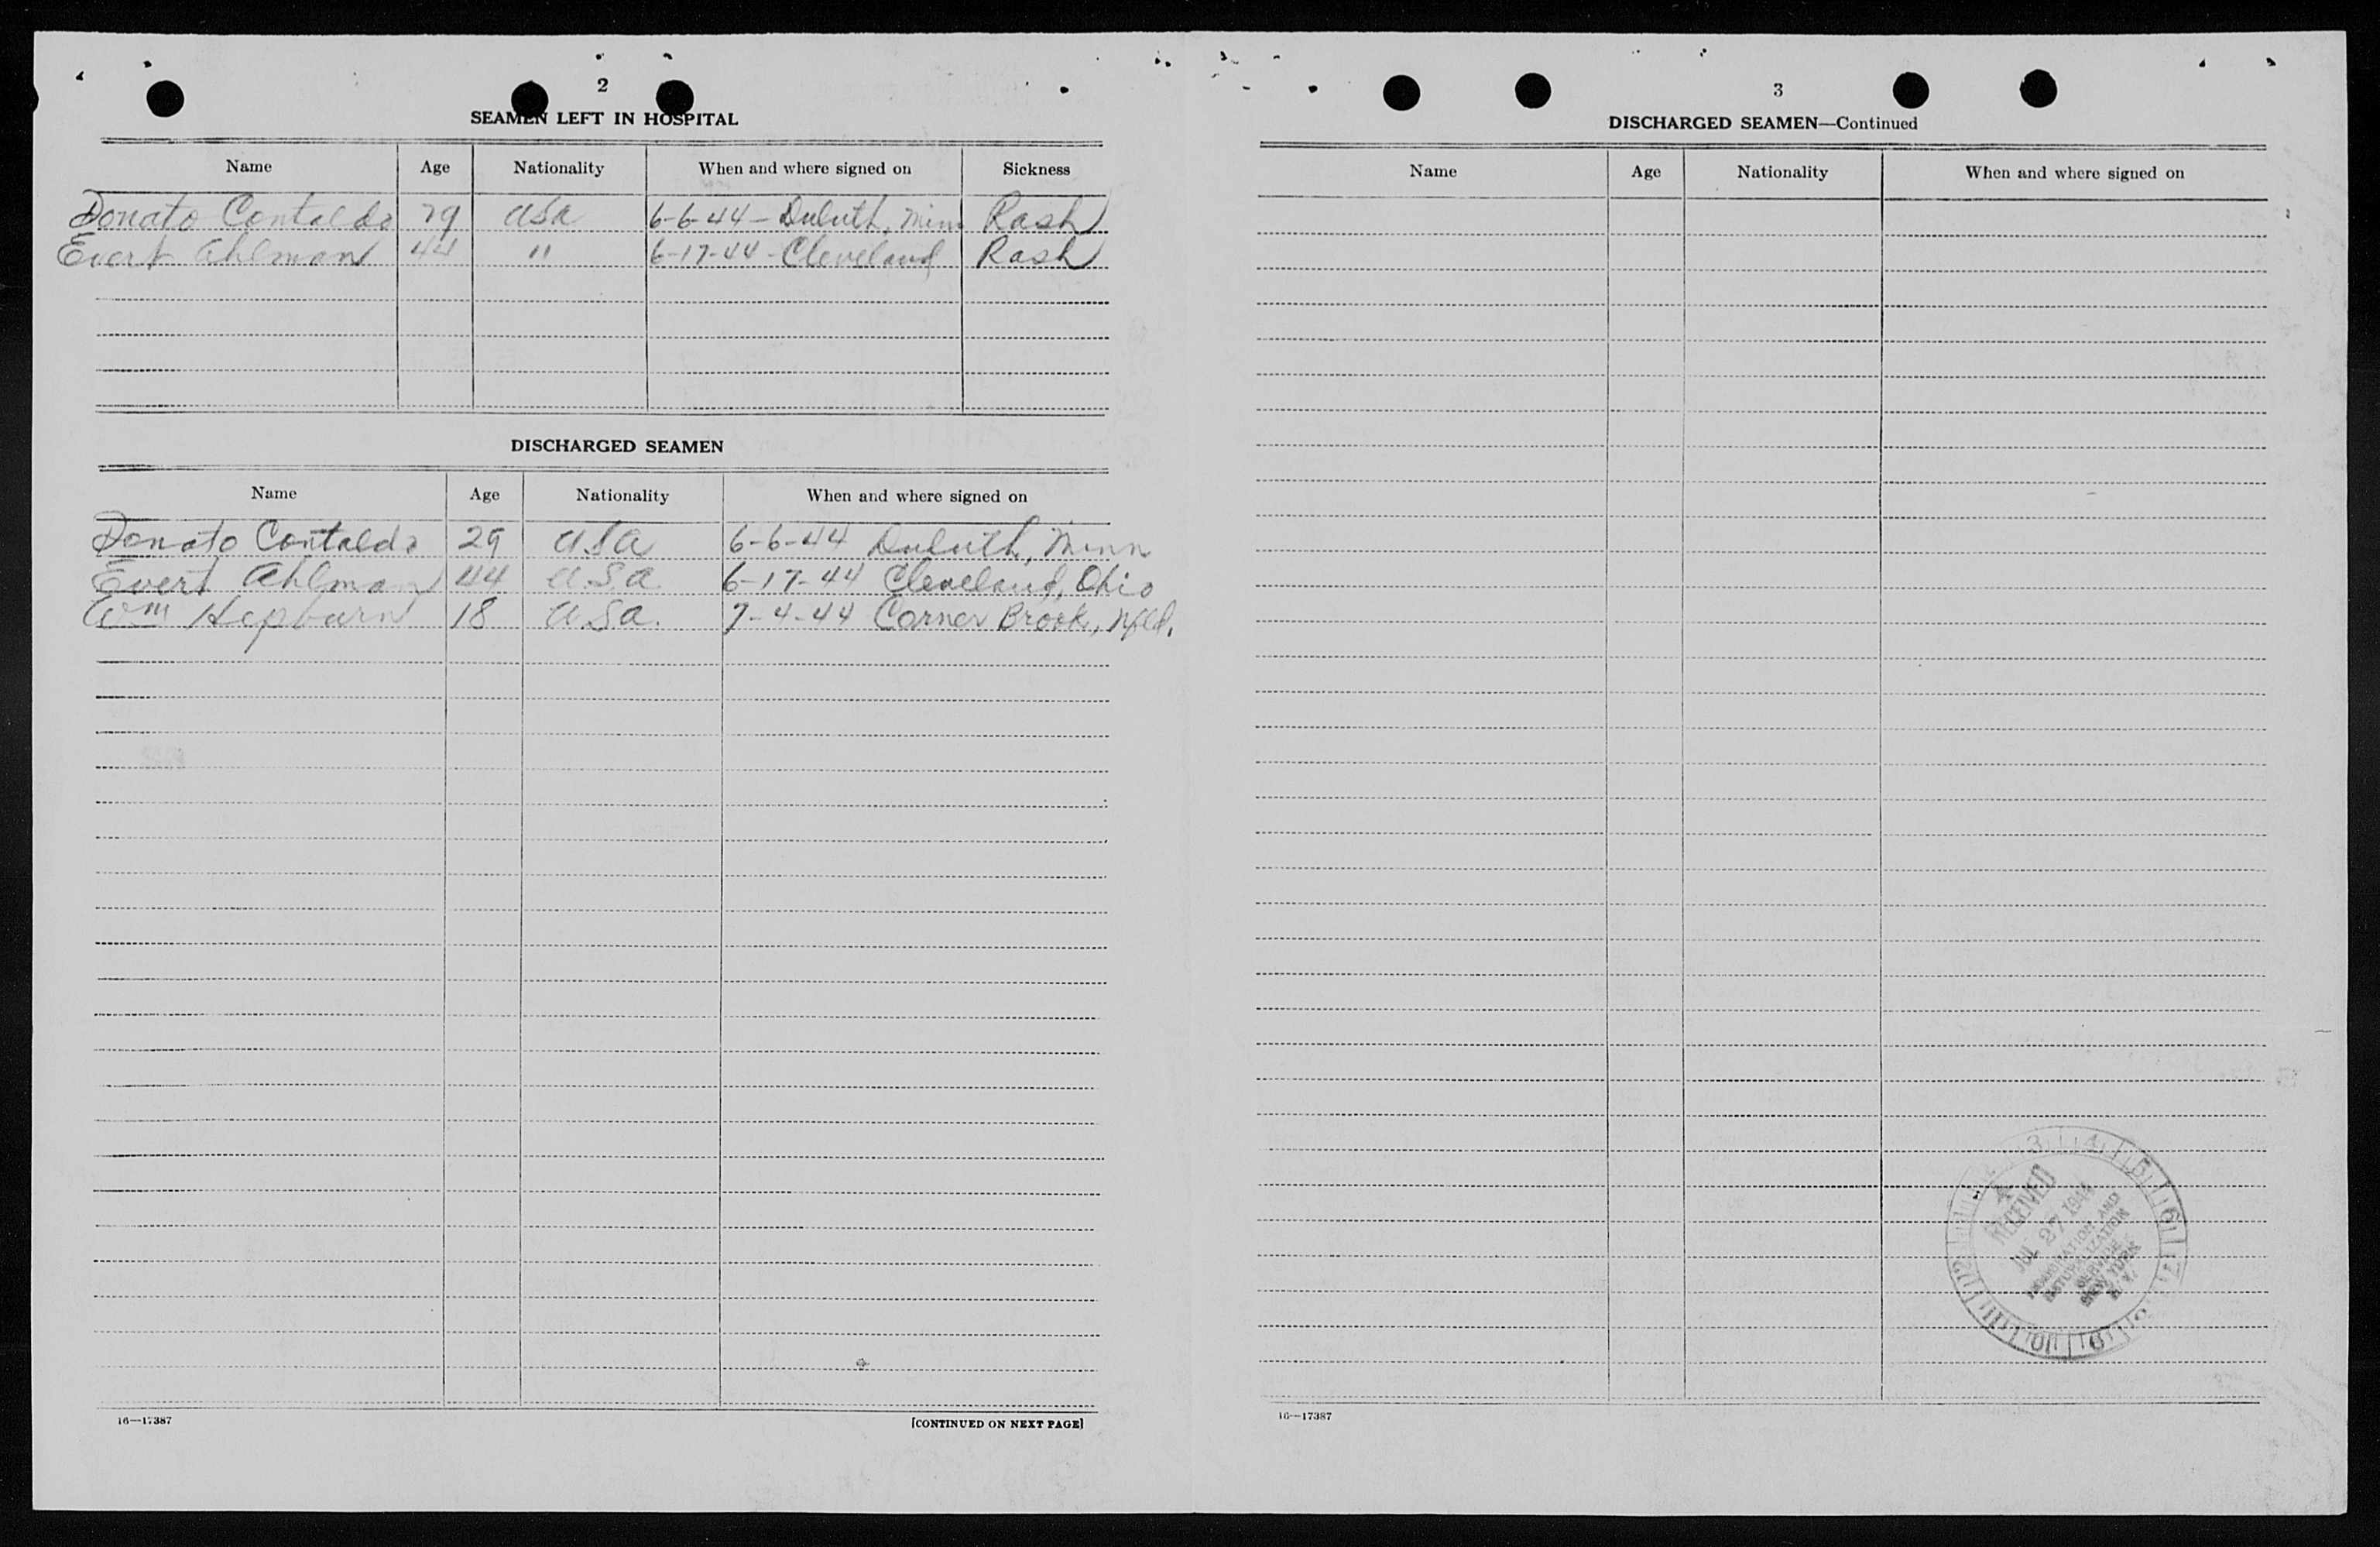 2
SEAMEN LEFT IN HOSPITAL
Name Age Nationality When and where signed on Sickness
Donato Contaldo 29 USA 6-6-44 - Duluth, Minn Rash
Evert Ahlman 44 " 6-17-44 - Cleveland Rash
DISCHARGED SEAMEN
Name Age Nationality When and where signed on
Donato Contaldo 29 USA 6-6-44 Duluth, Minn
Evert Ahlman 44 U.S.A. 6-17-44 Cleveland, Ohio
Wm Hepburn 18 U.S.A. 7-4-44 Corner Brook, Nfld.
16—17387
[CONTINUED ON NEXT PAGE]
3
DISCHARGED SEAMEN—Continued
Name Age Nationality When and where signed on
RECEIVED
JUL 27 1944
IMMIGRATION AND
NATURALIZATION
SERVICE
NEW YORK
N. Y.
16—17387